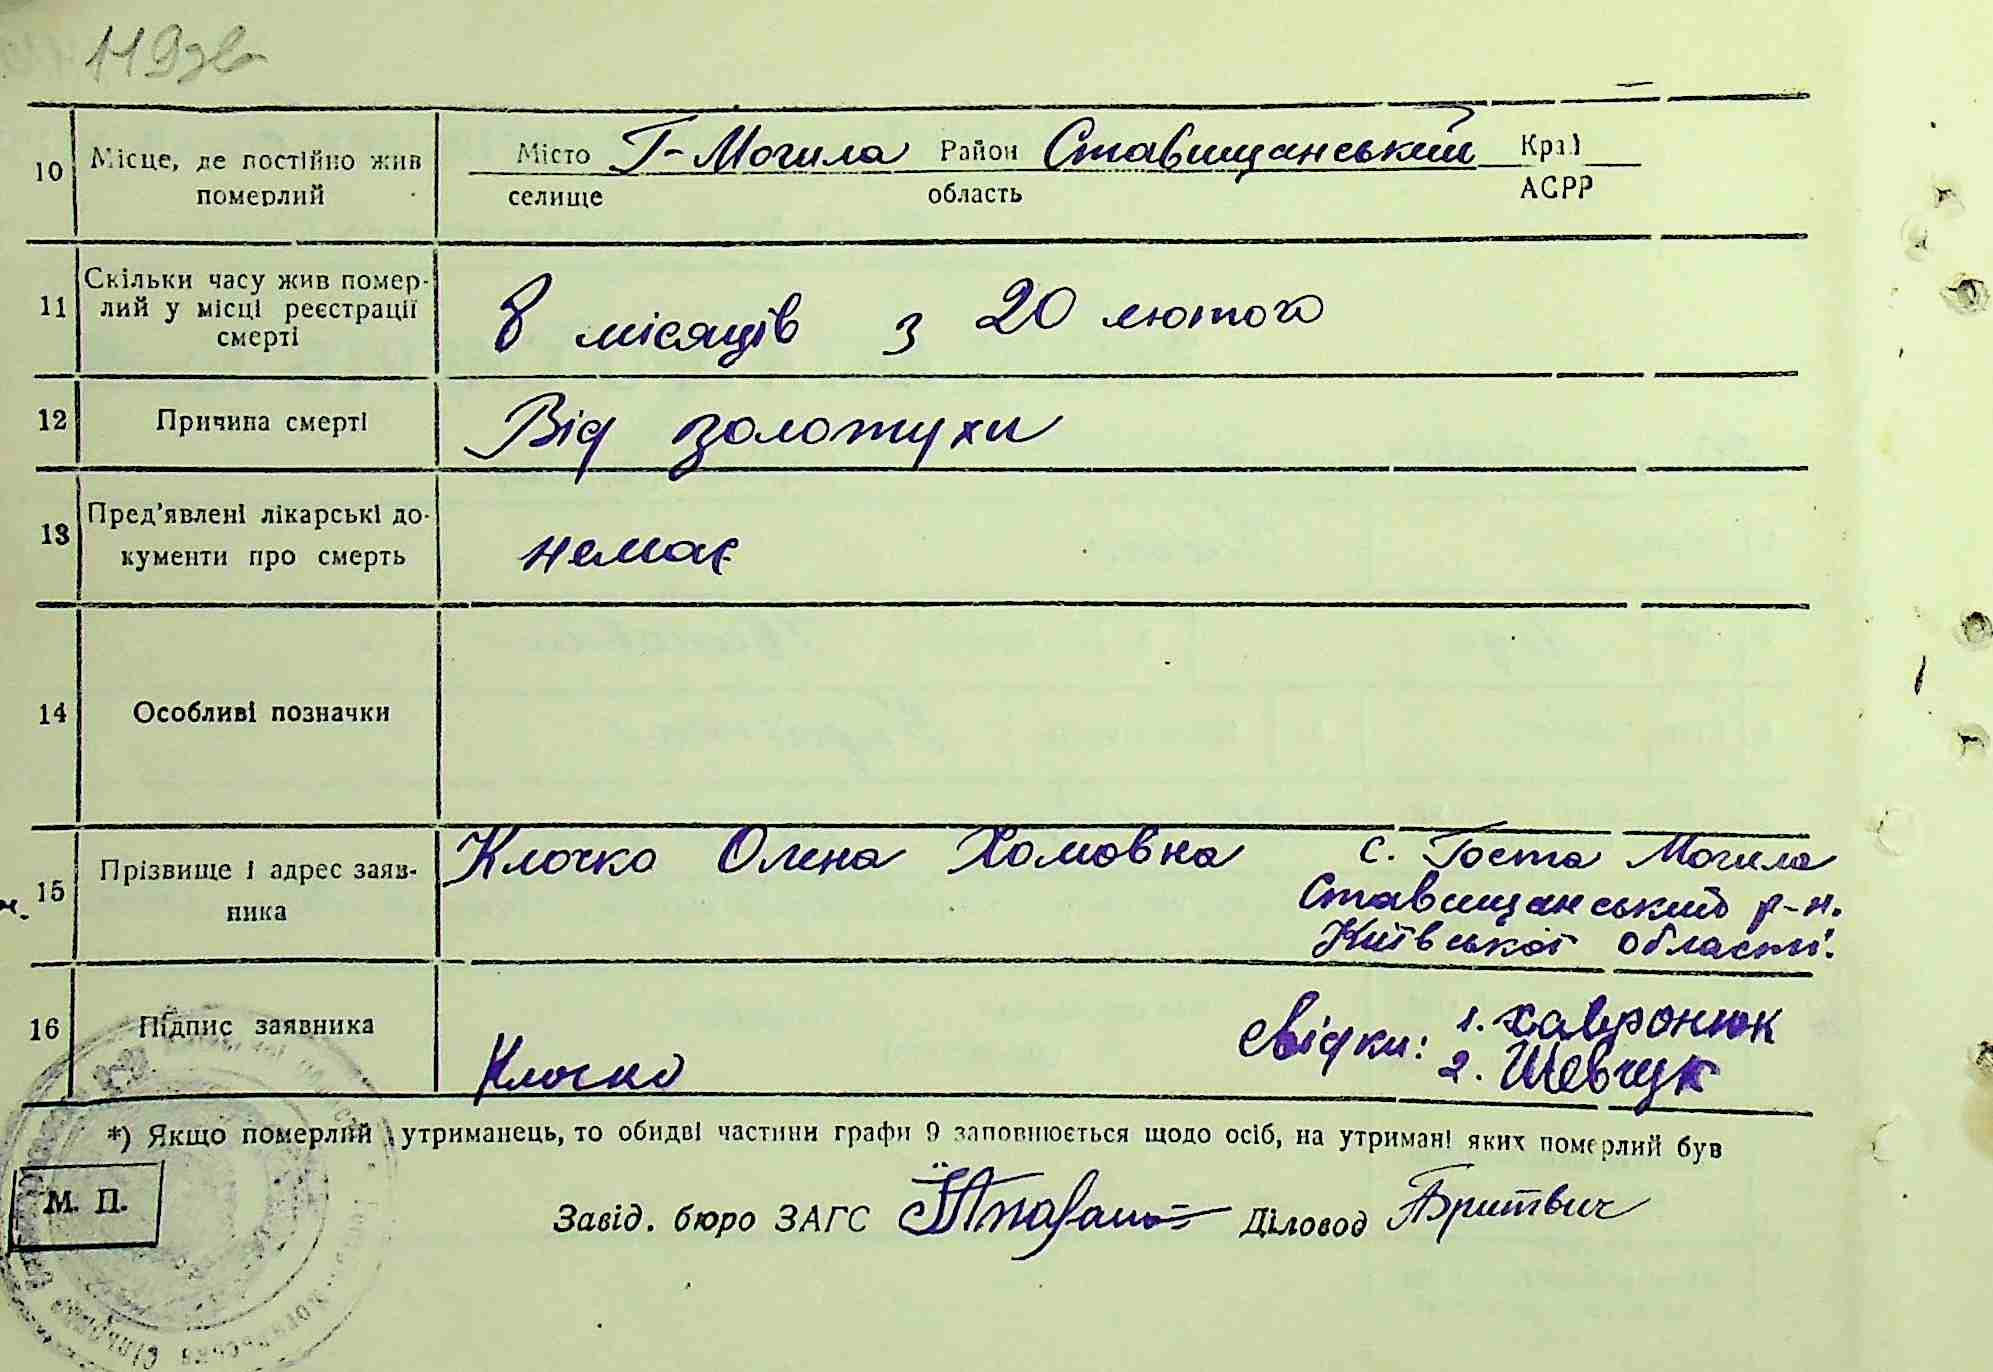 119зв
10 Місце, де постійно жив померлий Місто Г-Могила Район Ставищанський Край
селище область АСРР
11 Скільки часу жив помер-
лий у місці реєстрації
смерті
8 місяців з 20 лютого
12 Причина смерті Від золотухи
13 Пред'явлені лікарські до-
кументи про смерть
немає
14 Особливі позначки
15 Прізвище і адрес заяв-
ника
Клочко Олена Хомовна с. Госта Могила
Ставищанський р-н.
Київської області.
16 Підпис заявника
Клочко
свідки: 1. Хавронюк
2. Шевчук
*) Якщо померлий утриманець, то обидві частини графи 9 заповнюється щодо осіб, на утримані яких померлий був
М. П.
Завід. бюро ЗАГС Діловод Бритвич